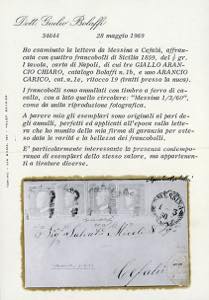 Dott. Giulio Bolaffi
34644
28 maggio 1969
Ho esaminato la lettera da Messina a Cefalù, affran-
cata con quattro francobolli di Sicilia 1859, def ½ gr.
I tavola, carta di Napoli, di cui tre GIALLO ARAN-
CIO CHIARO, catalogo Bolaffi n.1b, e uno ARANCIO
CARICO, cat.n.1c, ritocco 19 (tratti presso la nuca).
I francobolli sono annullati con timbro a ferro di
cavallo, con a lato quello circolare: "Messina 1/3/60"
come da unita riproduzione fotografica.
A parere mio gli esemplari sono originali al pari de-
gli annulli, perfetti ed applicati all'epoca sulla lette-
ra che ho munito della mia firma di garanzia per este-
so data la varietà e la bellezza dei francobolli.
E' particolarmente interessante la presenza contempo-
ranea di esemplari dello stesso valore, ma appartenen-
ti a tirature diverse.
Cefalù